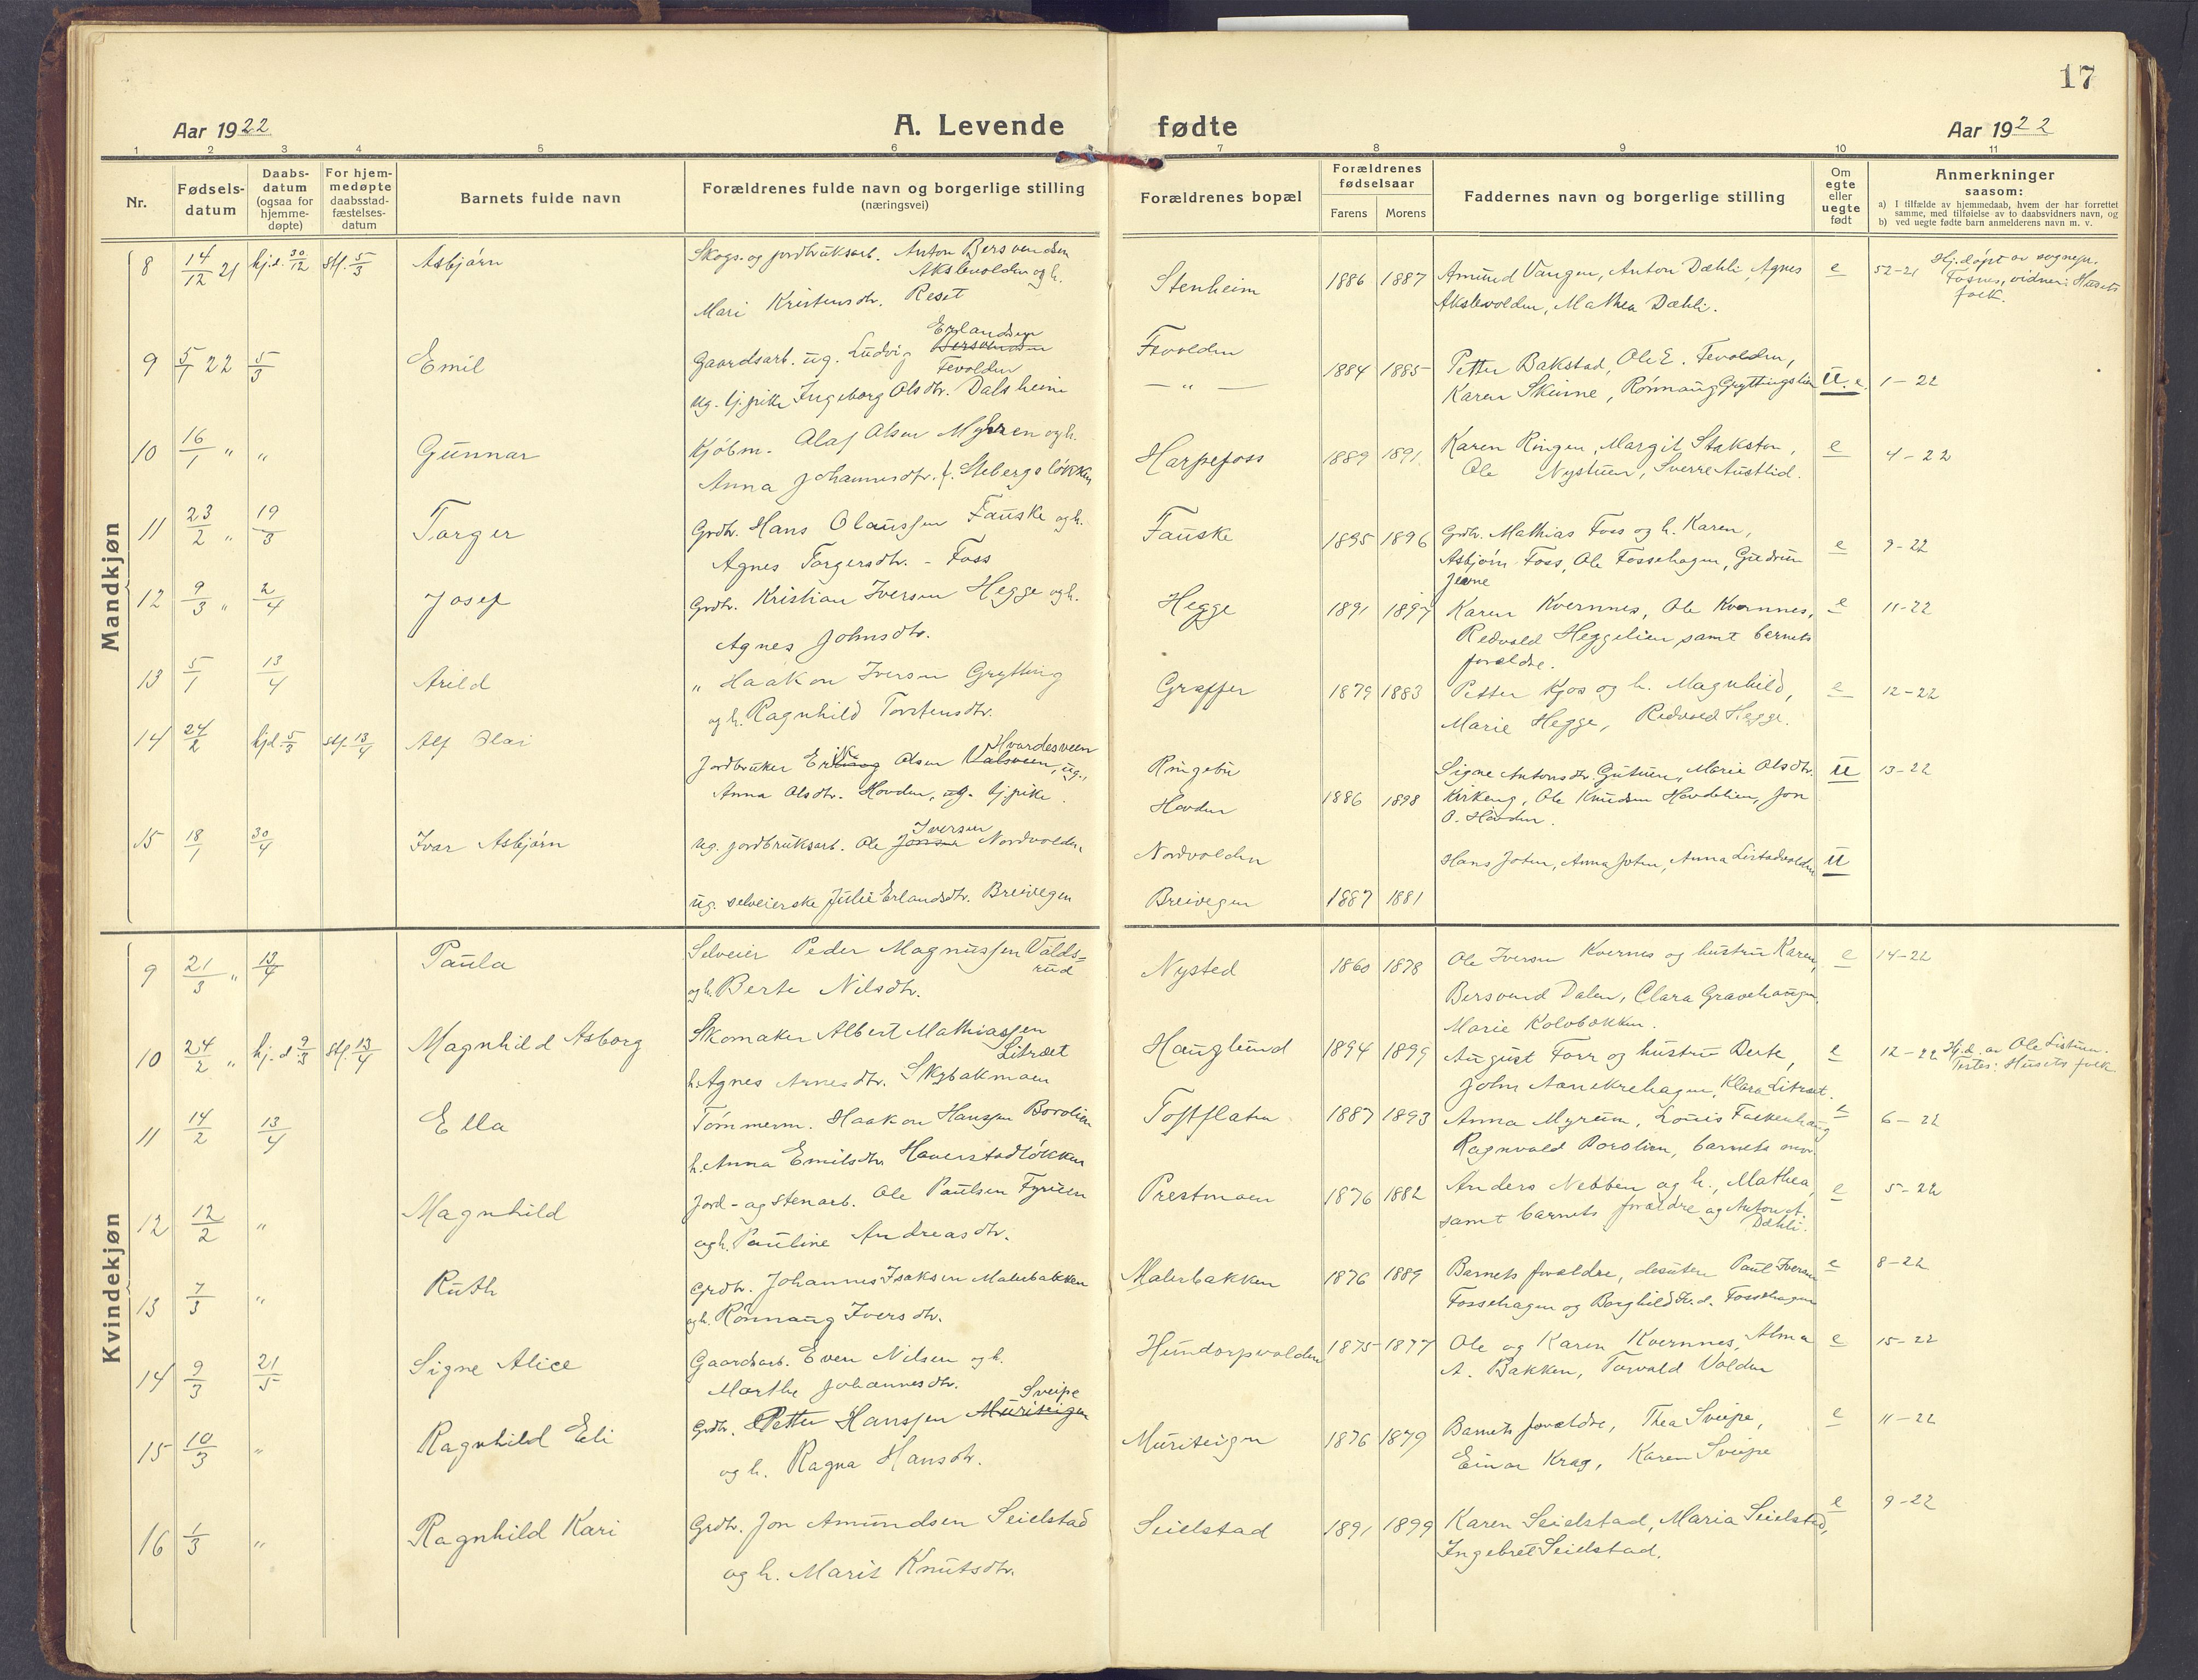 17
Aar 1922
A. Levende fødte
Aar 1922
1 2 3 4 5 6 7 8 9 10 11
Nr.
Fødsels-
datum
Daabs-
datum
(ogsaa for
hjemme-
døpte)
For hjem-
medøpte
daabsstad-
fæstelses-
datum
Barnets fulde navn
Forældrenes fulde navn og borgerlige stilling
(næringsvei)
Forældrenes bopæl
Forældrenes
fødselsaar
Farens Morens
Faddernes navn og borgerlige stilling
Om
egte
eller
uegte
født
Anmerkninger
saasom:
a) I tilfælde av hjemmedaab, hvem der har forrettet
samme, med tilføielse av to daabsvidners navn, og
b) ved uegte fødte barn anmelderens navn m. v.
Mandkjøn
8 14/12 21 hj.d. 30/12 stf. 5/3 Asbjørn
Skogs- og jordbruksarb. Anton Bersvendsen
Akslevolden og h.
Mari Kristensdtr. Reset
Stenheim 1886 1887
Amund Vangen, Anton Dæhli, Agnes
Akslevolden, Mathea Dæhli.
e 52-21
Hj.døpt av sognepr.
Fosnes, vidner: Husets
folk.
9 5/1 22 5/3 Emil
Erlandsen
Gaardsarb. ug. Ludvig Bersvendsen
Fevolden
ug. tj.pike Ingeborg Olsdtr. Dalsheim
Fevolden
— " —
1884 1885
Petter Bakstad, Ole E. Fevolden,
Karen Skinne, Rønnaug Gryttingslien
u.e. 1-22
10 16/1 " " Gunnar
Kjøbm. Olaf Olsen Myhren og h.
Anna Johannesdtr. f. Stebergsløkken
Harpefoss 1889 1891
Karen Ringen, Margit Stakston,
Ole Nystuen, Sverre Austlid.
e 4-22
11 23/2 " 19/3 Torger
Grdbr. Hans Olaussen Fauske og h.
Agnes Torgersdtr. - Foss
Fauske 1895 1896
Grdbr. Mathias Foss og h. Karen,
Asbjørn Foss, Ole Fossehagen, Gudrun
Jevne
e 9-22
12 9/3 " 2/4 Josef
Grdbr. Kristian Iversen Hegge og h.
Agnes Johnsdtr.
Hegge 1891 1897
Karen Kvernnes, Ole Kvernnes,
Redvald Heggelien samt barnets
forældre.
e 11-22
13 5/1 13/4 Arild
" Haakon Iversen Grytting
og h. Ragnhild Torstensdtr.
Graffer 1879 1883
Petter Kjos og h. Magnhild,
Marie Hegge, Redvald Hegge.
e 12-22
14 24/2 hjd. 5/3 stf. 13/4 Alf Olai
Jordbruker Erik Olsen Valsveen Hvardesveen, ug.,
Anna Olsdtr. Hovden, ug. tj.pike.
Ringebu
Hovden
1886 1898
Signe Antonsdtr. Gutuen, Marie Olsdtr.
Kirkeng, Ole Knudsen Hovdelien, Jon
O. Hovden.
u 13-22
15 18/1 30/4 Ivar Asbjørn
Iversen
ug. jordbruksarb. Ole Jonsen Nordvolden
ug. selveierske Julie Erlandsdtr. Breivegen
Nordvolden
Breivegen
1887 1881
Hans Joten, Anna Joten, Anna Listadvolden
u
Kvindekjøn
9 21/3 " 13/4 Paula
Selveier Peder Magnussen Valds=
rud
og h. Berte Nilsdtr.
Nysted 1860 1878
Ole Iversen Kvernes og hustru Karen,
Bersvend Dalen, Clara Gravehaugen,
Marie Kolobakken.
e 14-22
10 24/2 " hj.d 9/3 stf. 13/4 Magnhild Asborg
Skomaker Albert Mathiassen
Litræet
h. Agnes Arnesdtr. Skybakmoen
Hauglund 1894 1899
August Forr og hustru Berte,
John Aanekrehagen, Klara Litræet.
e 12-22
Hj.d. av Ole Listuen.
Testes: Husets folk.
11 14/2 13/4 Ella
Tømmerm. Haakon Hanssen Borolien
h. Anna Emilsdtr. Haverstadløkken
Toftflaten 1887 1893
Anna Myrum, Louis Falkenhaug
Ragnvald Borolien, barnets mor.
e 6-22
12 12/2 " Magnhild
Jord- og stenarb. Ole Paulsen Fyruen
og h. Pauline Andreasdtr.
Prestmoen 1876 1882
Anders Nebben og h., Mathea,
samt barnets forældre og Anton A.
Dæhli.
e 5-22
13 7/3 " Ruth
Grdbr. Johannes Isaksen Malerbakken
og h. Rønnaug Iversdtr.
Malerbakken 1876 1889
Barnets forældre, desuten Paul Iversen
Fossehagen og Borghild H.d. Fossehagen
e 8-22
14 9/3 21/5 Signe Alice
Gaardsarb. Even Nilsen og h.
Marthe Johannesdtr.
Hundorpvolden 1875 1877
Ole og Karen Kvernnes, Alma
A. Bakken, Torvald Volden
e 15-22
15 10/3 " Ragnhild Eli
Sveipe
Grdbr. Petter Hanssen Muriteigen
og h. Ragna Hansdtr.
Muriteigen 1876 1879
Barnets forældre, Thea Sveipe,
Einar Krag, Karen Sveipe
e 11-22
16 1/3 " Ragnhild Kari
Grdbr. Jon Amundsen Seielstad
og h. Marit Knutsdtr.
Seielstad 1891 1899
Karen Seielstad, Maria Seielstad,
Ingebret Seielstad.
e 9-22